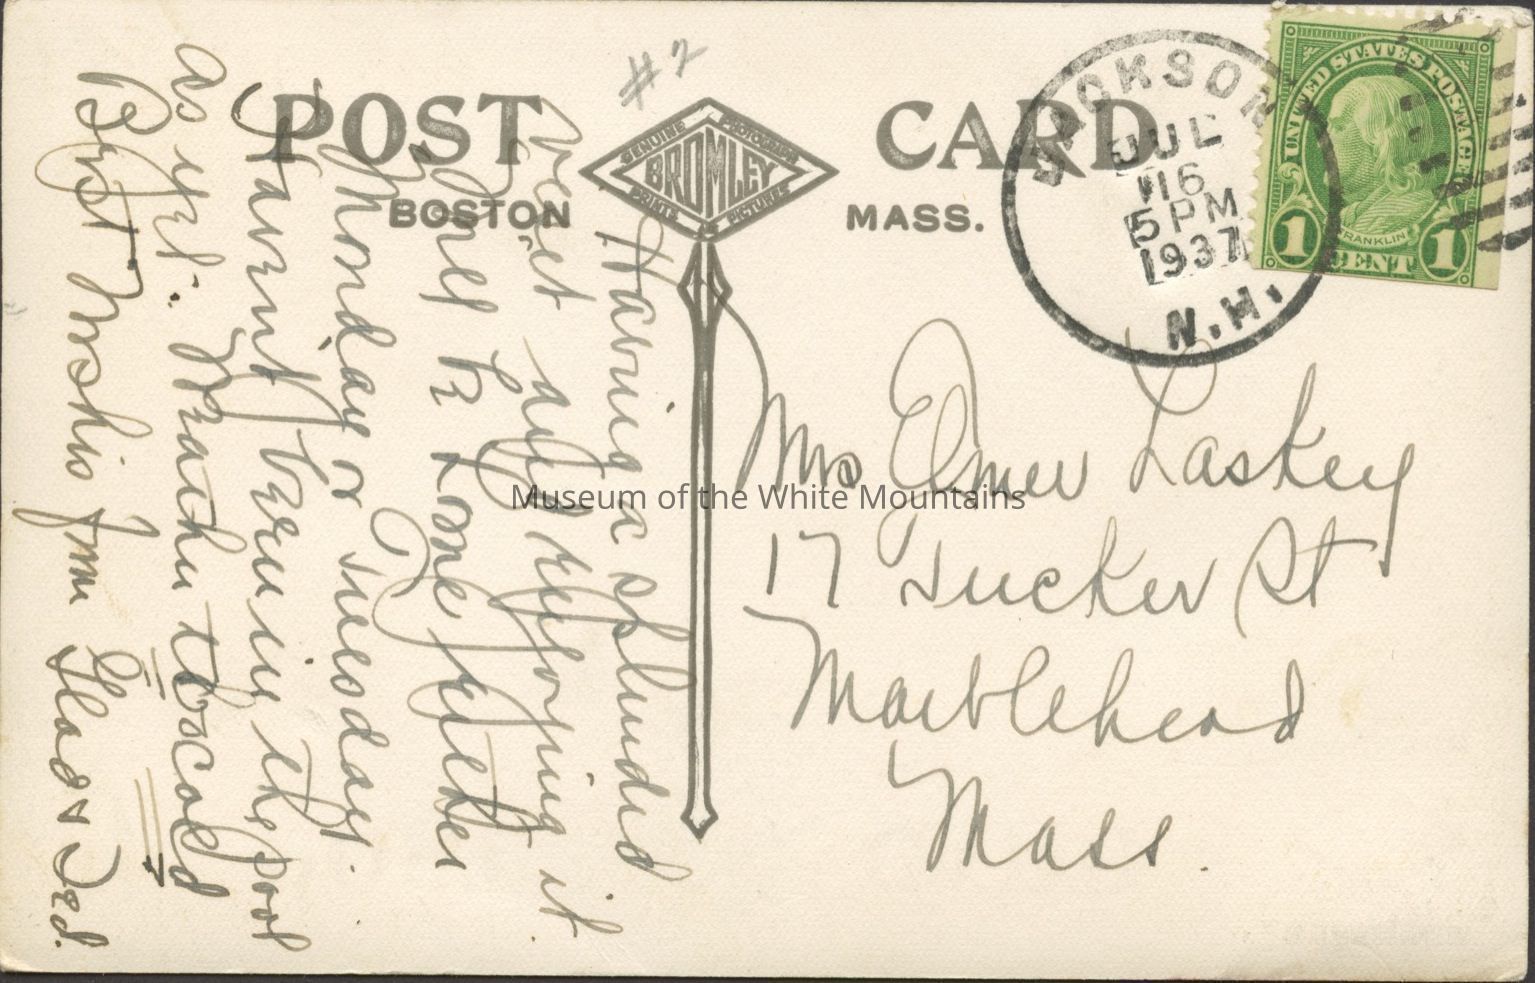 # 2
POST CARD
GENUINE PHOTOGRAPH
BROMLEY
PRINTS PICTURES
BOSTON MASS.
JACKSON
JUL
16
5 PM
1937
N.H.
UNITED STATES POSTAGE
FRANKLIN
1 CENT 1
Mrs Elmer Laskey
17 Tucker St
Marblehead
Mass.
Having a splendid
visit and enjoying it
Will be home either
Monday or Tuesday.
Havent been in the pool
as yet. Weather to cold
Best Wishes from Glad & Ted.
Museum of the White Mountains